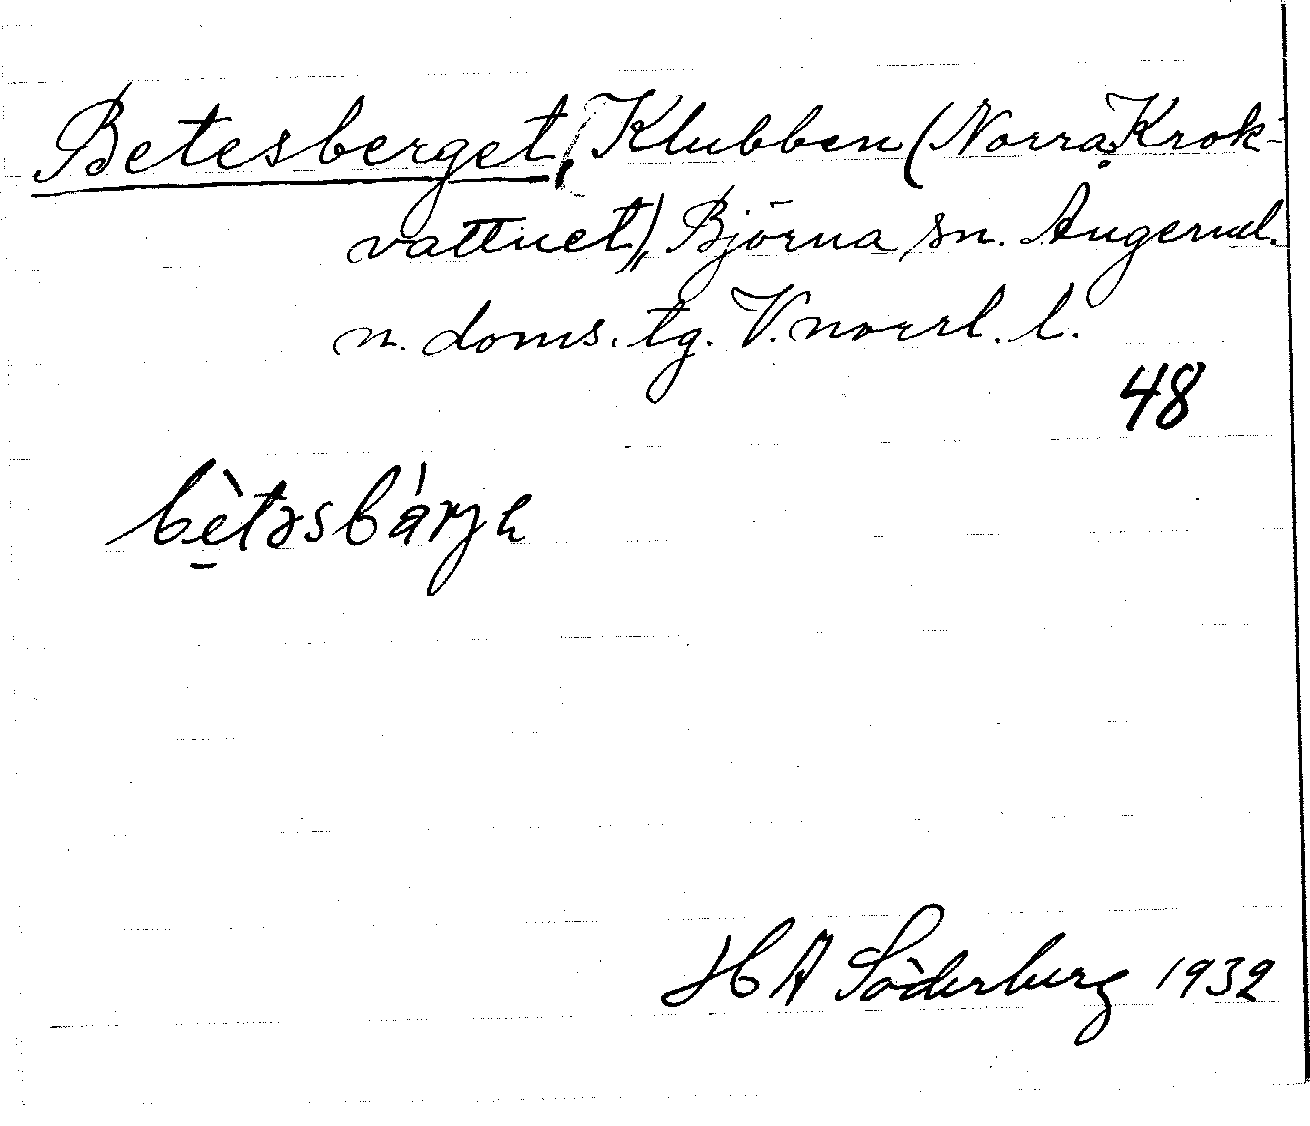 Betesberget, Klubben (Norra Krok-
vattnet), Björna sn. Ångerml.
n. doms. tg. V.norrl. l.
48
bètəsbárjə
H A Söderberg 1932